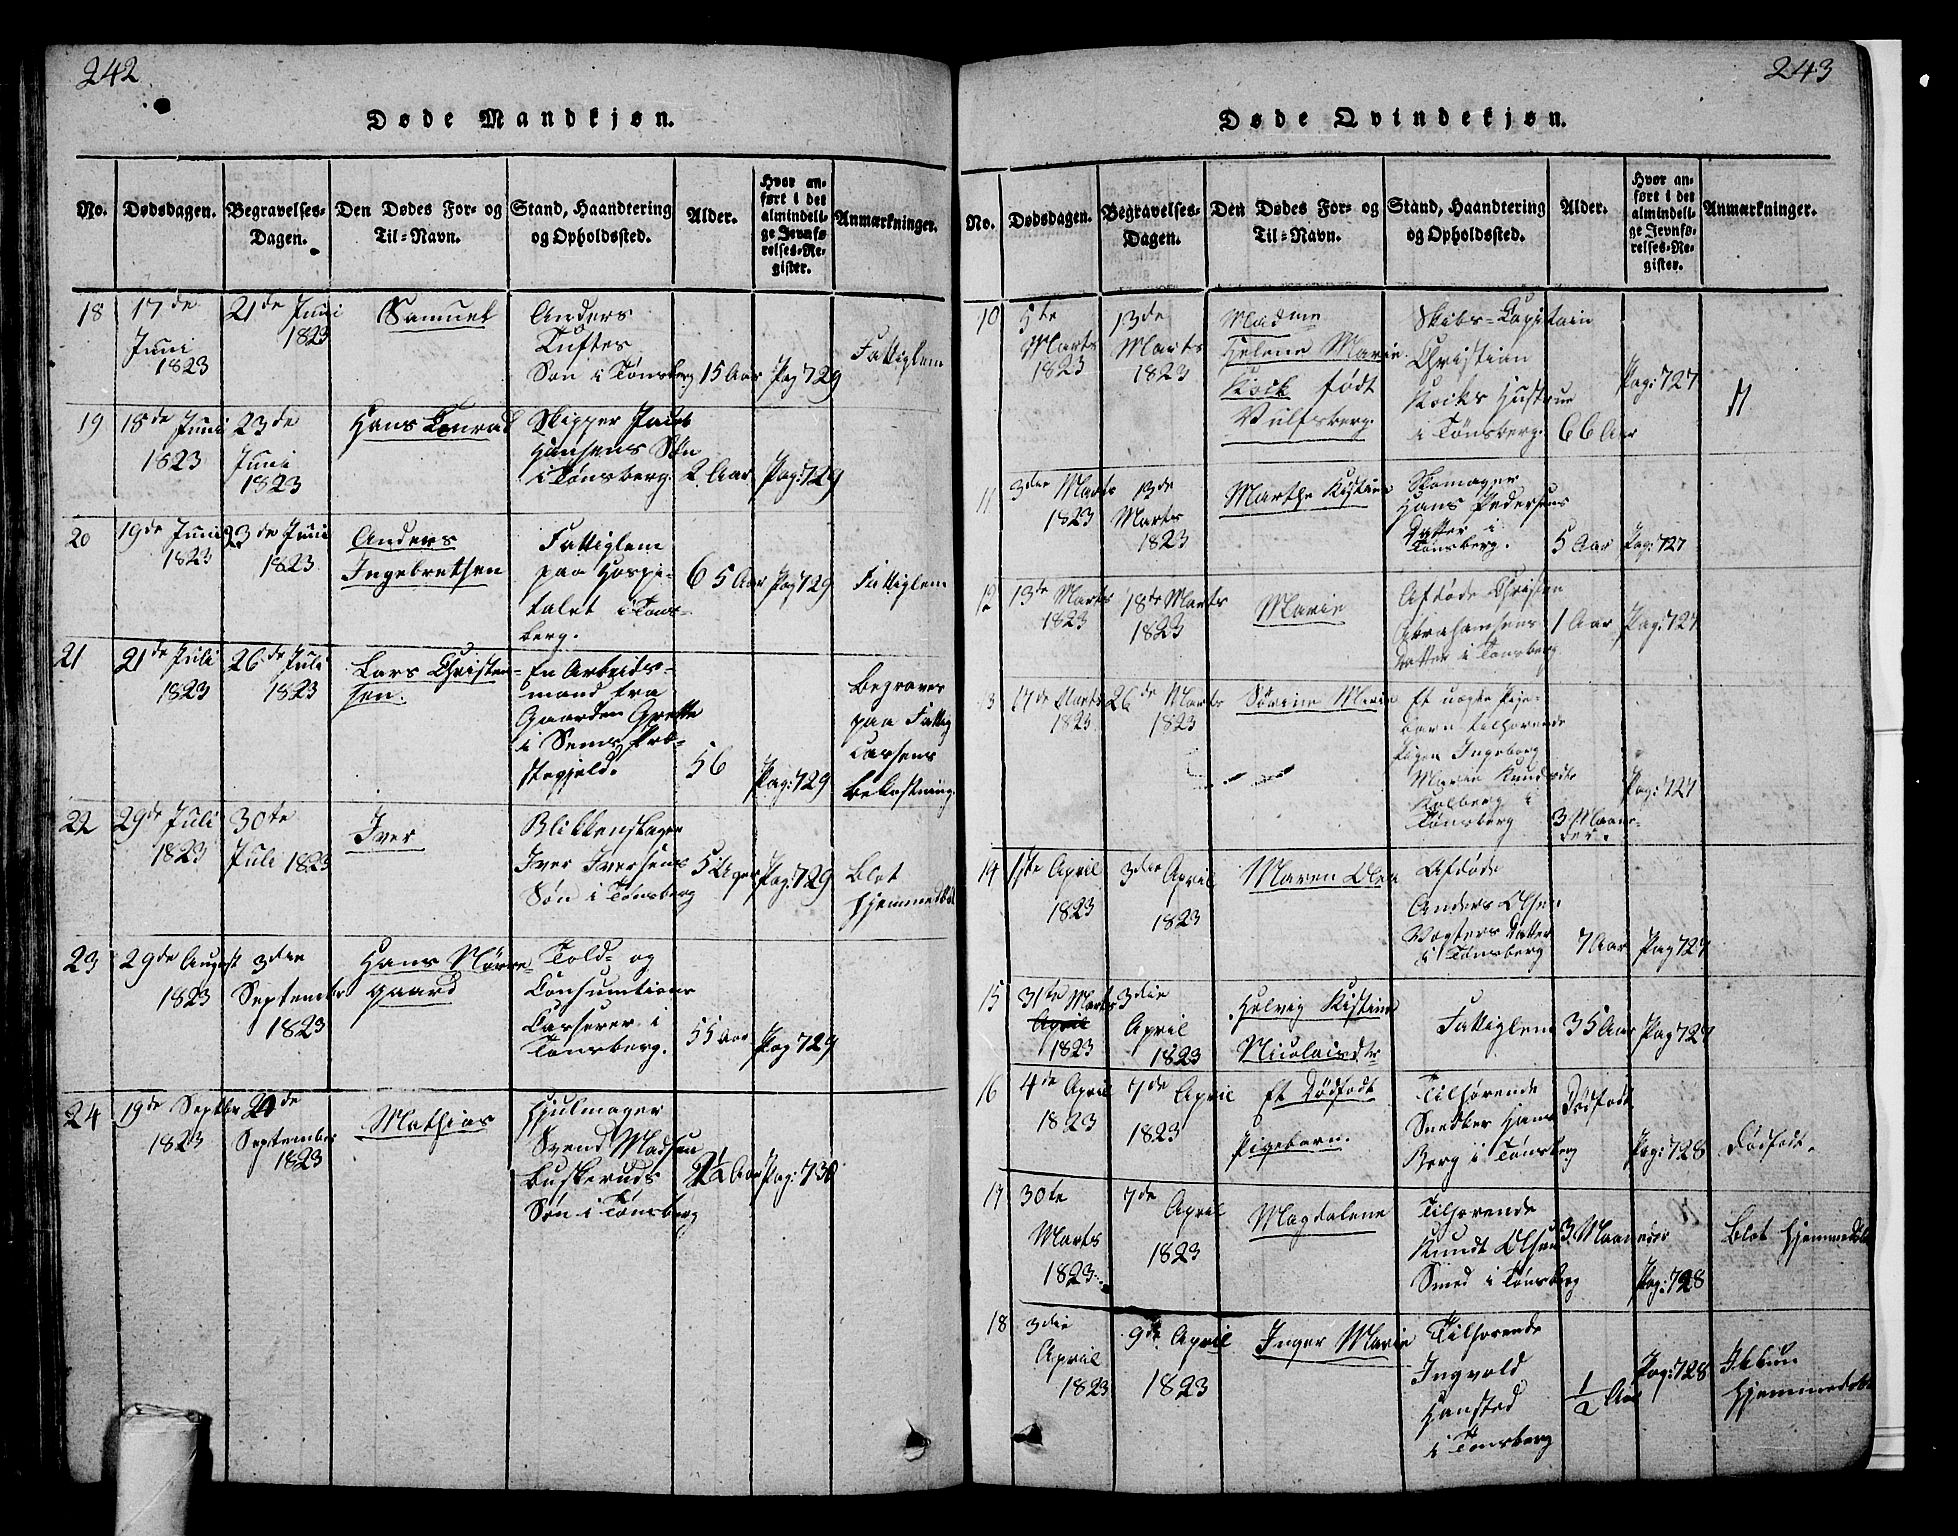 242
Døde Mandkjøn.
No. Dødsdagen. Begravelses-Dagen. Den Dødes For- og Til-Navn. Stand, Haandtering og Opholdssted. Alder. Hvor anført i det almindelige Jevnførelses-Register. Anmærkninger.
18 17de Juni 1823 21de Juni 1823 Samuel Anders Tuftes Søn i Tønsberg 15 Aar Pag 729 Fattiglem
19 18de Juni 1823 23de Juni 1823 Hans Conrad Skipper Jacob Hansens Søn i Tønsberg. 2 Aar Pag: 729
20 19de Juni 1823 23de Juni 1823 Anders Ingebretsen Fattiglem paa Hospitalet i Tønsberg. 65 Aar Pag 729 Fattiglem
21 21de Juli 1823 26de Juli 1823 Lars Christensen. En Arbeidsmand fra Gaarden Grette i Sems Præstegjeld. 56 Pag: 729 Begraves paa Fattig Cassens Bekostning.
22 29de Juli 1823 30te Juli 1823 Iver Blikkenslager Iver Iversens Søn i Tønsberg 5 Uger Pag: 729 Blot Hjemmedøbt
23 29de August 1823 3die September 1823 Hans Nørregaard Told- og Consumtions Casserer i Tønsberg. 55 Aar Pag 729
24 19de Septbr 1823 September 1823 Mathias Hjulmager Svend Madsen Buskeruds Søn i Tønsberg 2½ Aar Pag: 730
243
Døde Qvindekjøn.
No. Dødsdagen. Begravelses-Dagen. Den Dødes For- og Til-Navn. Stand, Haandtering og Opholdssted. Alder. Hvor anført i det almindelige Jevnførelses-Register. Anmærkninger.
10 5te Marts 1823 13de Marts 1823 Madme Helene Marie Kock født Wulfsberg. Skibs-Capitain Christian Kocks Hustrue i Tønsberg. 66 Aar Pag: 727
11 3die Marts 1823 13de Marts 1823 Marthe Kistine Skomager Hans Pedersens Datter i Tønsberg. 5 Aar Pag: 727
12 13de Marts 1823 18de Marts 1823 Marie Afdøde Christen Abrahamsens Datter i Tønsberg 1 Aar Pag: 727
13 17de Marts 1823 26de Marts 1823 Sørine Marie Et uægte Pigebarn tilhørende Pigen Ingeborg Marie Knudsdtr Kolberg i Tønsberg 3 Maaneder. Pag: 727
14 1ste April 1823 3die April 1823 Maren Olea Afdøde Anders Olsen Vogters Datter i Tønsberg 7 Aar Pag 727
15 31te Marts April 1823 3die April 1823 Helvig Kistine Nicolaisdtr Fattiglem 35 Aar Pag 727
16 4de April 1823 7de April 1823 Et Dødfødt Pigebarn. Tilhørende Snedker Hans Berg i Tønsberg Dødfødt Pag: 728 Dødfødt.
17 30te Marts 1823. 7de April 1823 Magdalene Tilhørende Knudt Olsen Smed i Tønsberg 3 Maaneder Pag: 728 Blot Hjemmedøbt
18 3die April 1823 9de April 1823 Inger Marie Tilhørende Ingvold Hansted i Tønsberg ½ Aar Pag: 728 Hjemmedøbt